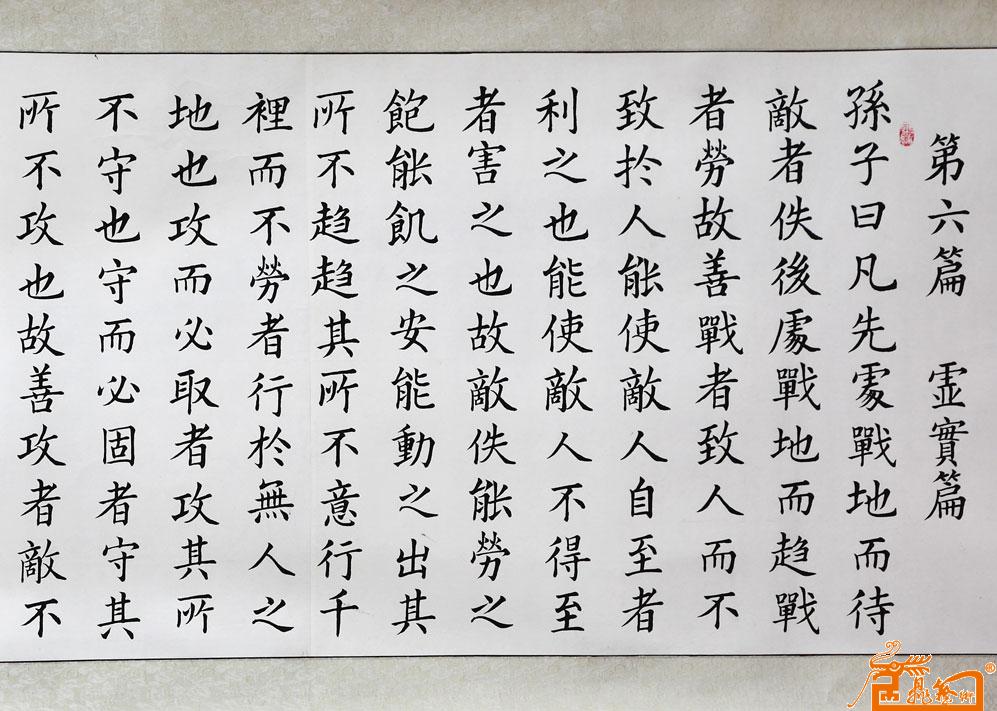 第六篇 虛實篇
孫子曰凡先處戰地而待
敵者佚後處戰地而趋戰
者勞故善戰者致人而不
致於人能使敵人自至者
利之也能使敵人不得至
者害之也故敵佚能勞之
飽能飢之安能動之出其
所不趋趋其所不意行千
裡而不勞者行於無人之
地也攻而必取者攻其所
不守也守而必固者守其
所不攻也故善攻者敵不